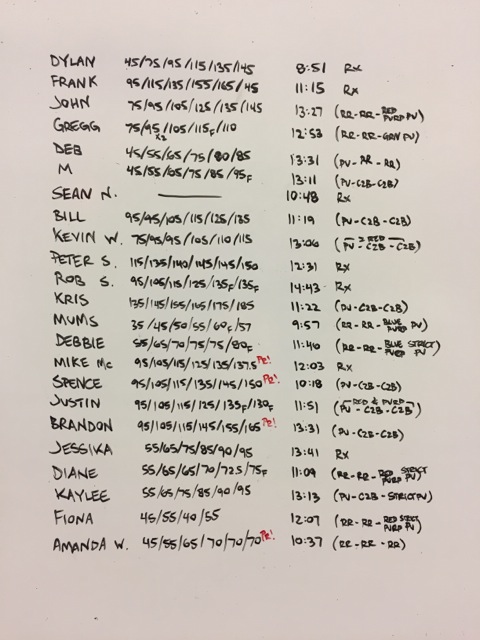 DYLAN 45/75/95/115/135/145 8:51 Rx
FRANK 95/115/135/155/165/45 11:15 Rx
JOHN 75/95/105/125/135/145 13:27 (RR-RR-RED PURP PV)
GREGG 75/95x2/105/115F/110 12:53 (RR-RR-GRN PV)
DEB 45/55/65/75/80/85 13:31 (PV-RR-RR)
M 45/55/65/75/85/95F 13:11 (PV-C2B-C2B)
SEAN N. 10:48 Rx
BILL 95/95/105/115/125/135 11:19 (PV-C2B-C2B)
KEVIN W. 75/95/95/105/110/115 13:06 (PV-C2B-C2B) RED
PETER S. 115/135/140/145/145/150 12:31 Rx
ROB S. 95/105/115/125/135F/135F 14:43 Rx
KRIS 135/145/155/165/175/185 11:22 (PV-C2B-C2B)
MUMS 35/45/50/55/60F/57 9:57 (RR-RR-BLUE PURP PV)
DEBBIE 55/65/70/75/75/80F 11:40 (RR-RR-BLUE STRICT PURP PV)
MIKE Mc 95/105/115/125/135/137.5 PR! 12:03 Rx
SPENCE 95/105/115/135/145/150 PR! 10:18 (PV-C2B-C2B)
JUSTIN 95/105/115/125/135F/130F 11:51 (RED & PURP PV-C2B-C2B)
BRANDON 95/105/115/145/155/165 PR! 13:31 (PV-C2B-C2B)
JESSIKA 55/65/75/85/90/95 13:41 Rx
DIANE 55/65/65/70/72.5/75F 11:09 (RR-RR-RED STRICT PURP PV)
KAYLEE 55/65/75/85/90/95 13:13 (PV-C2B-STRICT PV)
FIONA 45/55/40/55 12:07 (RR-RR-RED STRICT PURP PV)
AMANDA W. 45/55/65/70/70/70 PR! 10:37 (RR-RR-RR)